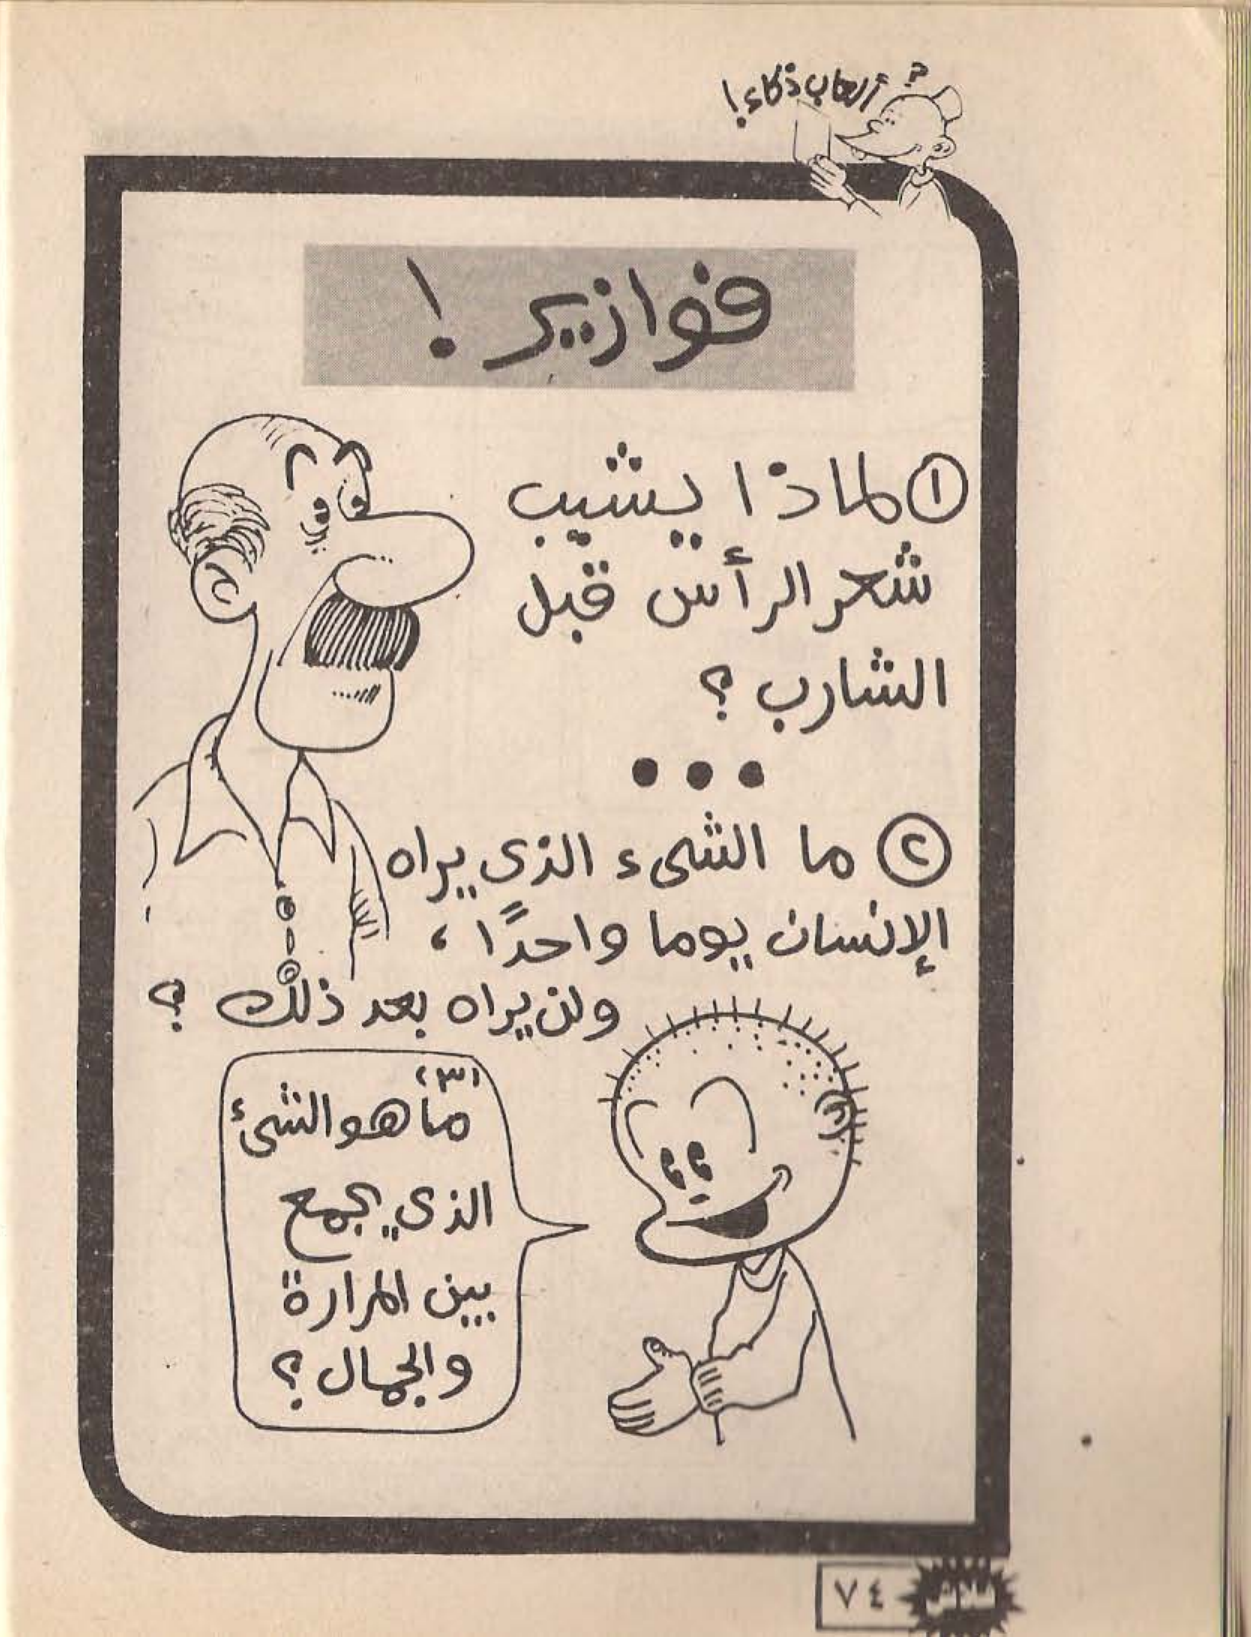 ألعاب ذكاء!
؟
فوازير!
١ لماذا يشيب
شعر الرأس قبل
الشارب ؟
٢ ما الشىء الذى يراه
الإنسان يوما واحدًا ،
ولن يراه بعد ذلك ؟
(٣)
ما هو الشئ
الذى يجمع
بين المرارة
والجمال ؟
٧٤